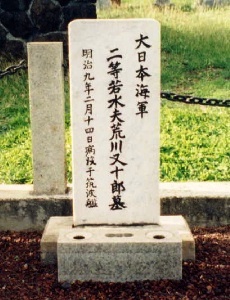 大日本海軍
二等若水夫荒川又十郎墓
明治九年二月十四日病歿于筑波艦